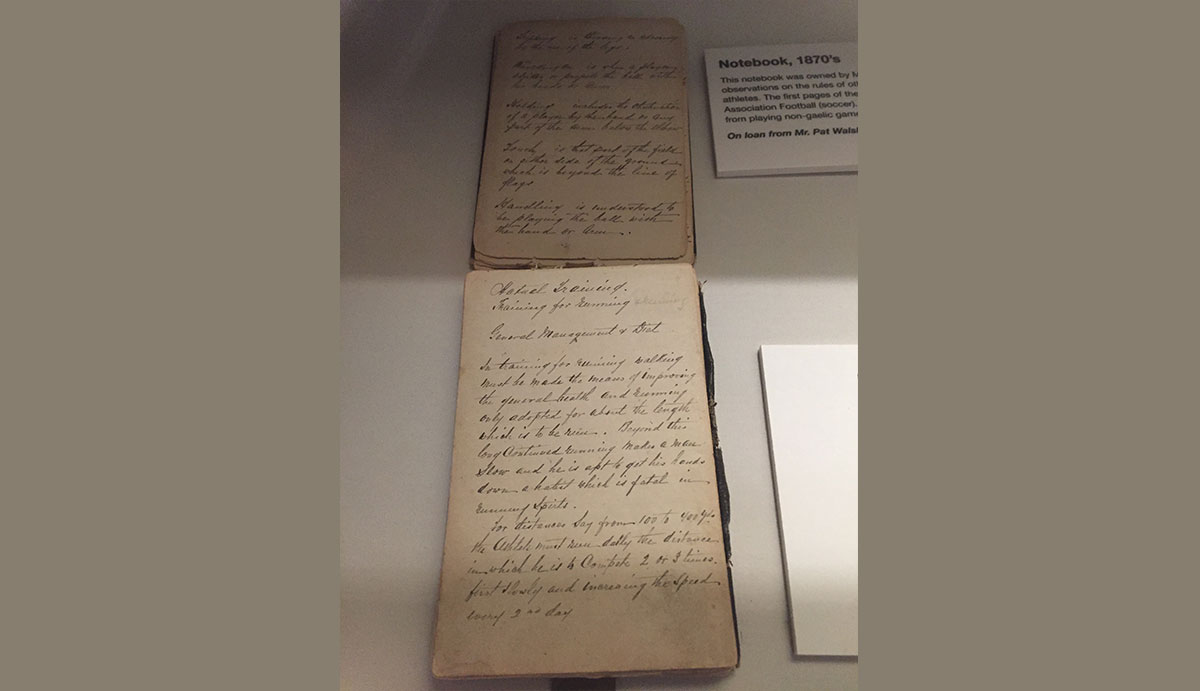 Tripping is throwing an adversary
by the use of the legs.
Knocking on is when a player
strikes or propels the ball with
his hands or arms
Holding includes the obstruction
of a player by the hand or any
part of the arm below the elbow
Touch is that part of the field
on either side of the ground
which is beyond the line of
flags
Handling is understood to
be playing the ball with
the hand or arm.
Actual Training.
Training for Running
General Management & Diet
In training for running walking
must be made the means of improving
the general health and running
only adopted for about the length
which is to be run. Beyond this
long continued running makes a man
slow and he is apt to get his hands
down a habit which is fatal in
running spirts.
For distances say from 100 to 400 yds
the Athlete must run daily the distance
in which he is to Compete 2 or 3 times.
first slowly and increasing the speed
every 2nd day
Notebook, 1870's
This notebook was owned by M
observations on the rules of ot
athletes. The first pages of the
Association Football (soccer).
from playing non-gaelic gam
On loan from Mr. Pat Wals